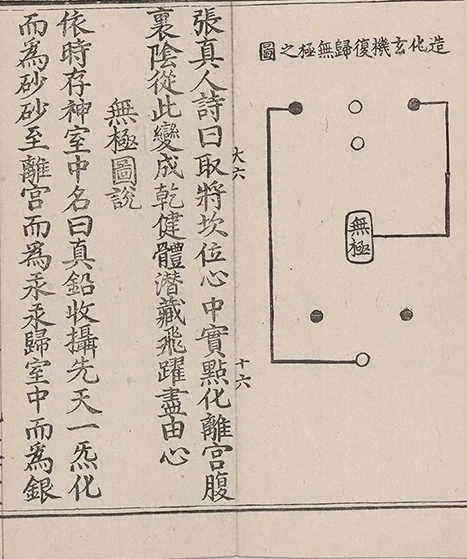 造化玄機復歸無極之圖
無極
大六
十六
張真人詩曰取將坎位心中實點化離宮腹
裏陰從此變成乾健體潛藏飛躍盡由心
無極圖說
依時存神室中名曰真鉛收攝先天一炁化
而為砂砂至離宮而為汞汞歸室中而為銀